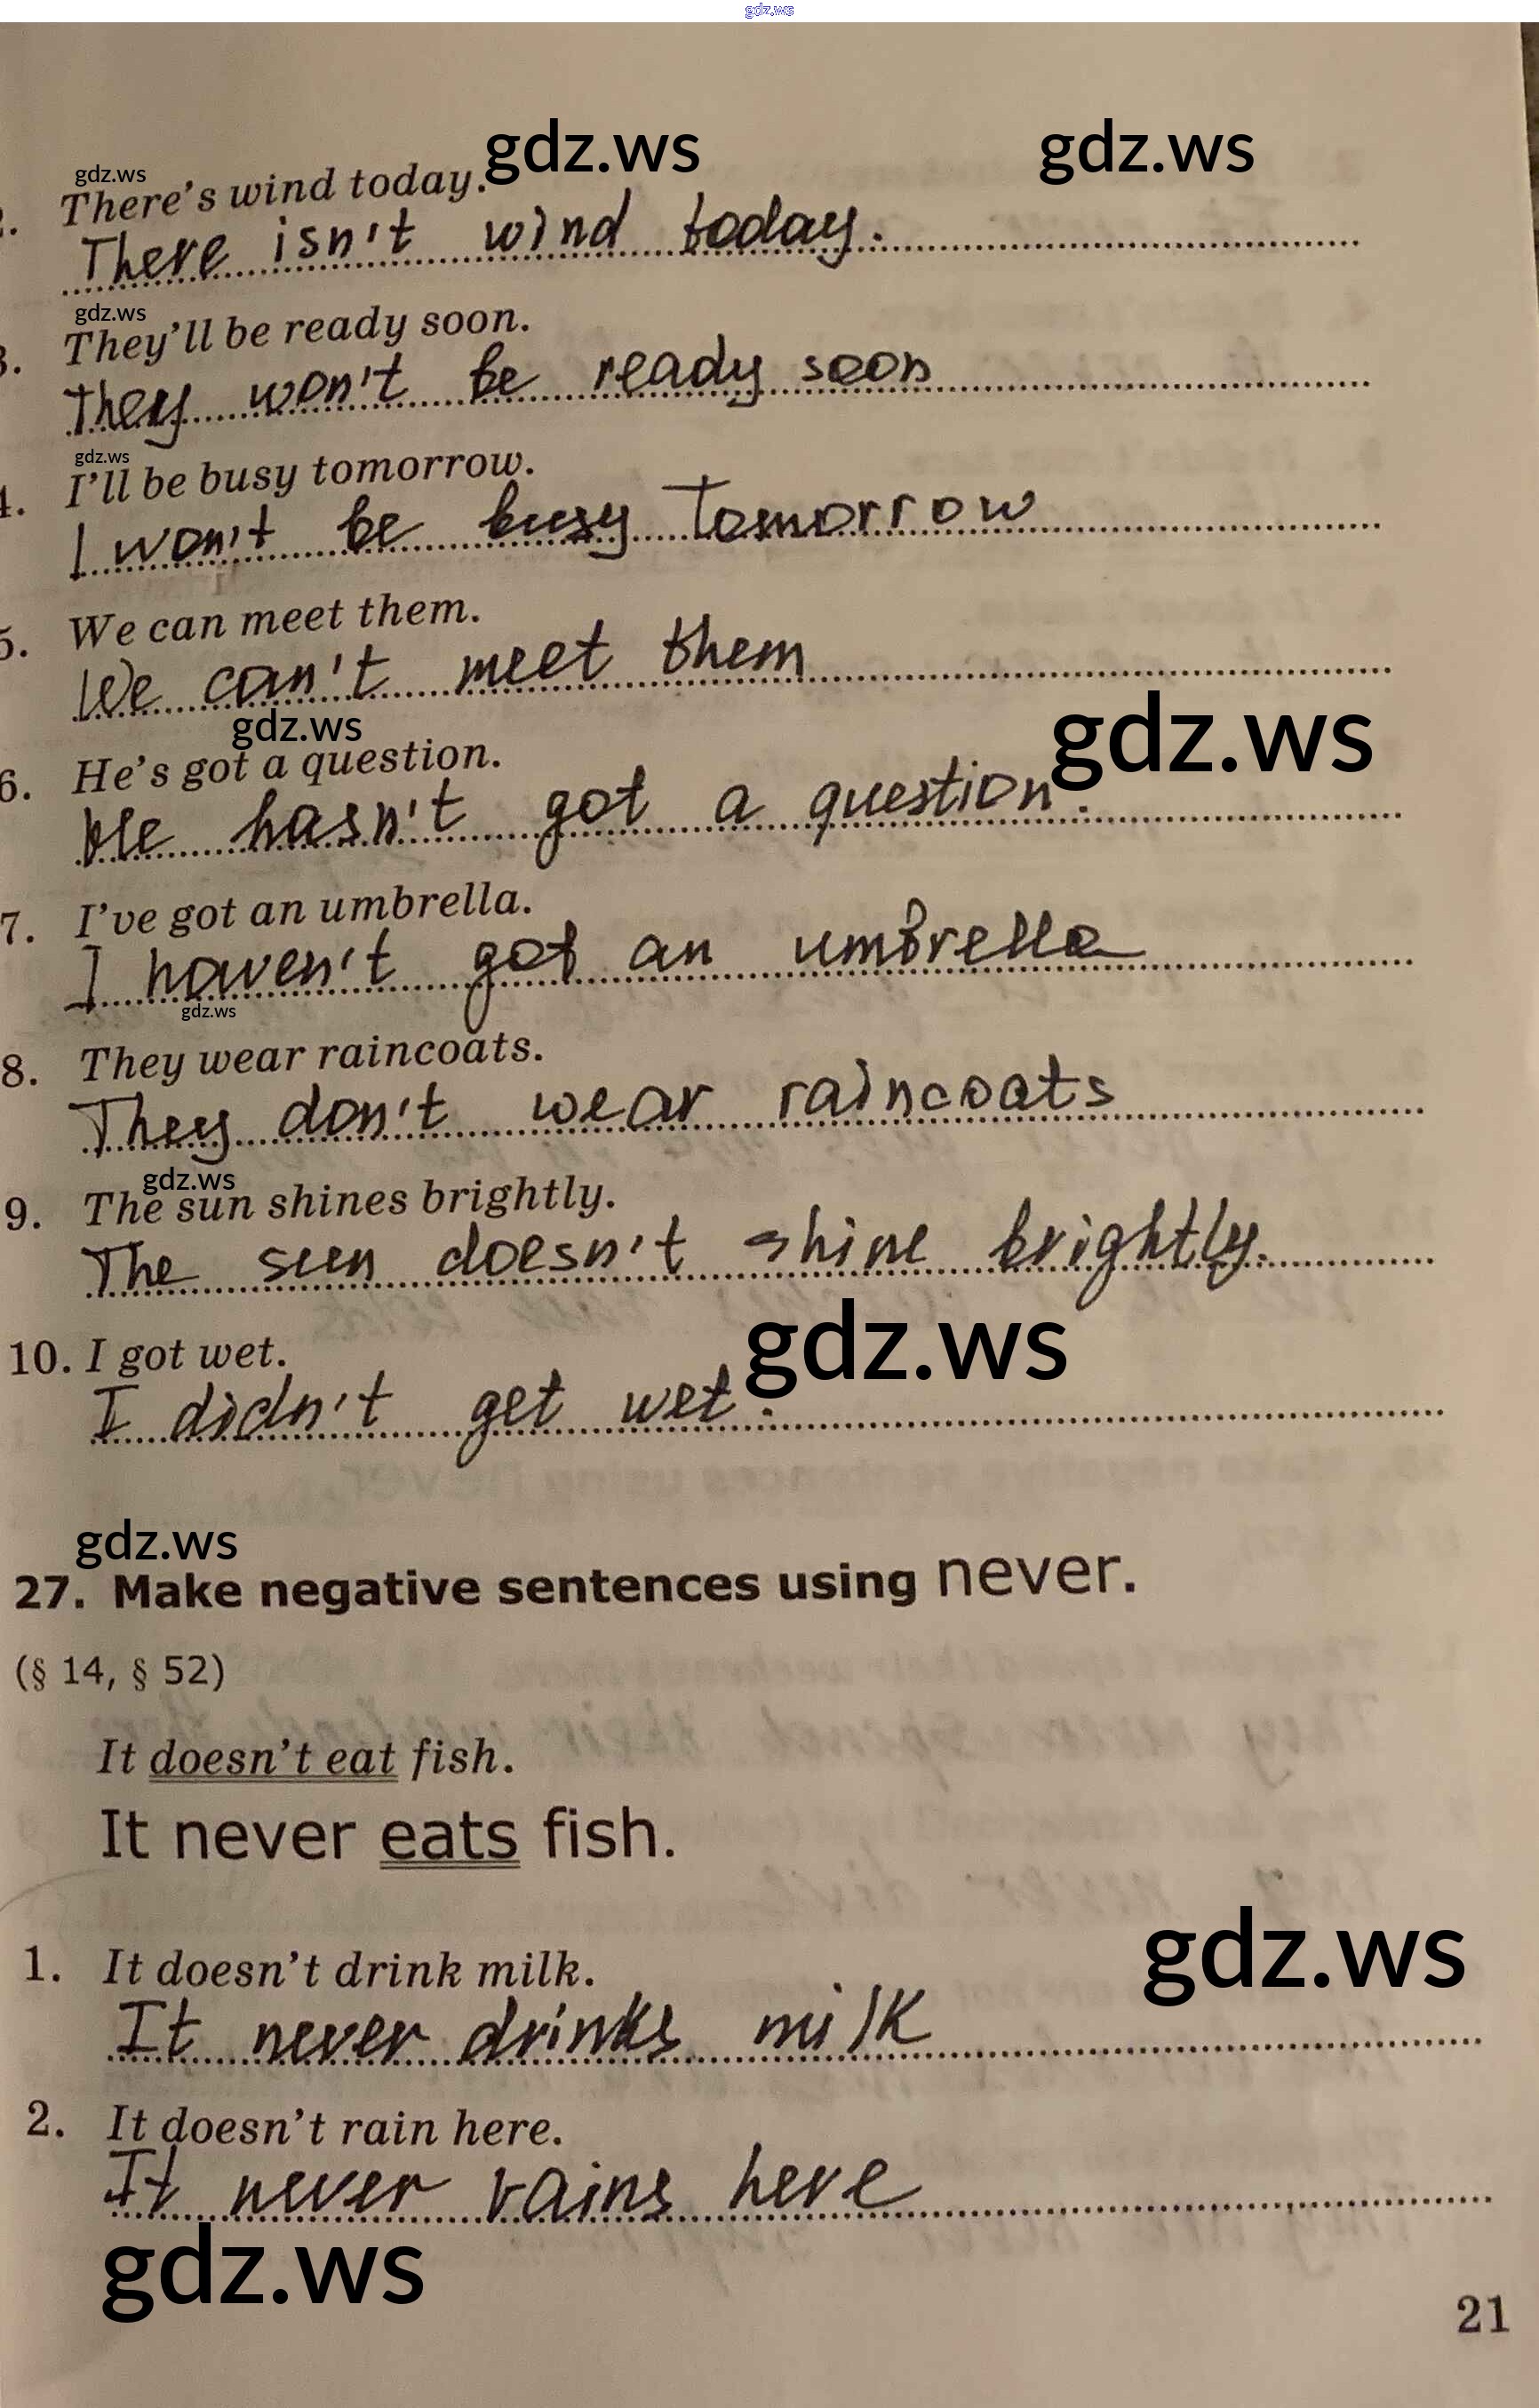 gdz.ws
gdz.ws gdz.ws
gdz.ws
2. There's wind today.
There isn't wind today.
gdz.ws
3. They'll be ready soon.
They won't be ready soon
gdz.ws
4. I'll be busy tomorrow.
I won't be busy tomorrow
5. We can meet them.
We can't meet them
gdz.ws gdz.ws
6. He's got a question.
He hasn't got a question.
7. I've got an umbrella.
I haven't got an umbrella
gdz.ws
8. They wear raincoats.
They don't wear raincoats
gdz.ws
9. The sun shines brightly.
The sun doesn't shine brightly.
gdz.ws
10. I got wet.
I didn't get wet.
gdz.ws
27. Make negative sentences using never.
(§ 14, § 52)
It doesn't eat fish.
It never eats fish.
gdz.ws
1. It doesn't drink milk.
It never drinks milk
2. It doesn't rain here.
It never rains here
gdz.ws
21